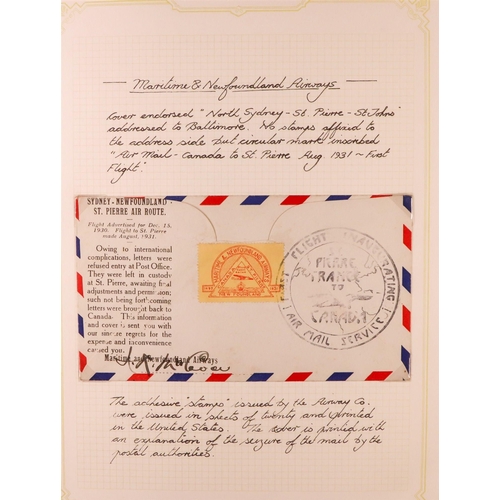 Maritime & Newfoundland Airways
Cover endorsed "North Sydney - St. Pierre - St. Johns"
addressed to Baltimore. No stamps affixed to
the address side but circular mark inscribed
"Air Mail - Canada to St. Pierre Aug. 1931 ~ First
Flight".
SYDNEY-NEWFOUNDLAND-
ST. PIERRE AIR ROUTE.
Flight Advertised for Dec. 15,
1930. Flight to St. Pierre
made August, 1931.
Owing to international
complications, letters were
refused entry at Post Office.
They were left in custody
at St. Pierre, awaiting final
adjustments and permission;
such not being forthcoming
letters were brought back to
Canada. This information
and cover is sent you with
our sincere regrets for the
expense and inconvenience
caused you.
Maritime and Newfoundland Airways
MARITIME & NEWFOUNDLAND AIRWAYS
CANADA
NEW FOUNDLAND
FIRST FLIGHT INAUGURATING
ST. PIERRE
FRANCE
TO
CANADA
AIR MAIL SERVICE
The adhesive "stamps" issued by the Airway Co.
were issued in sheets of twenty and printed
in the United States. The cover is printed with
an explanation of the seizure of the mail by the
postal authorities.